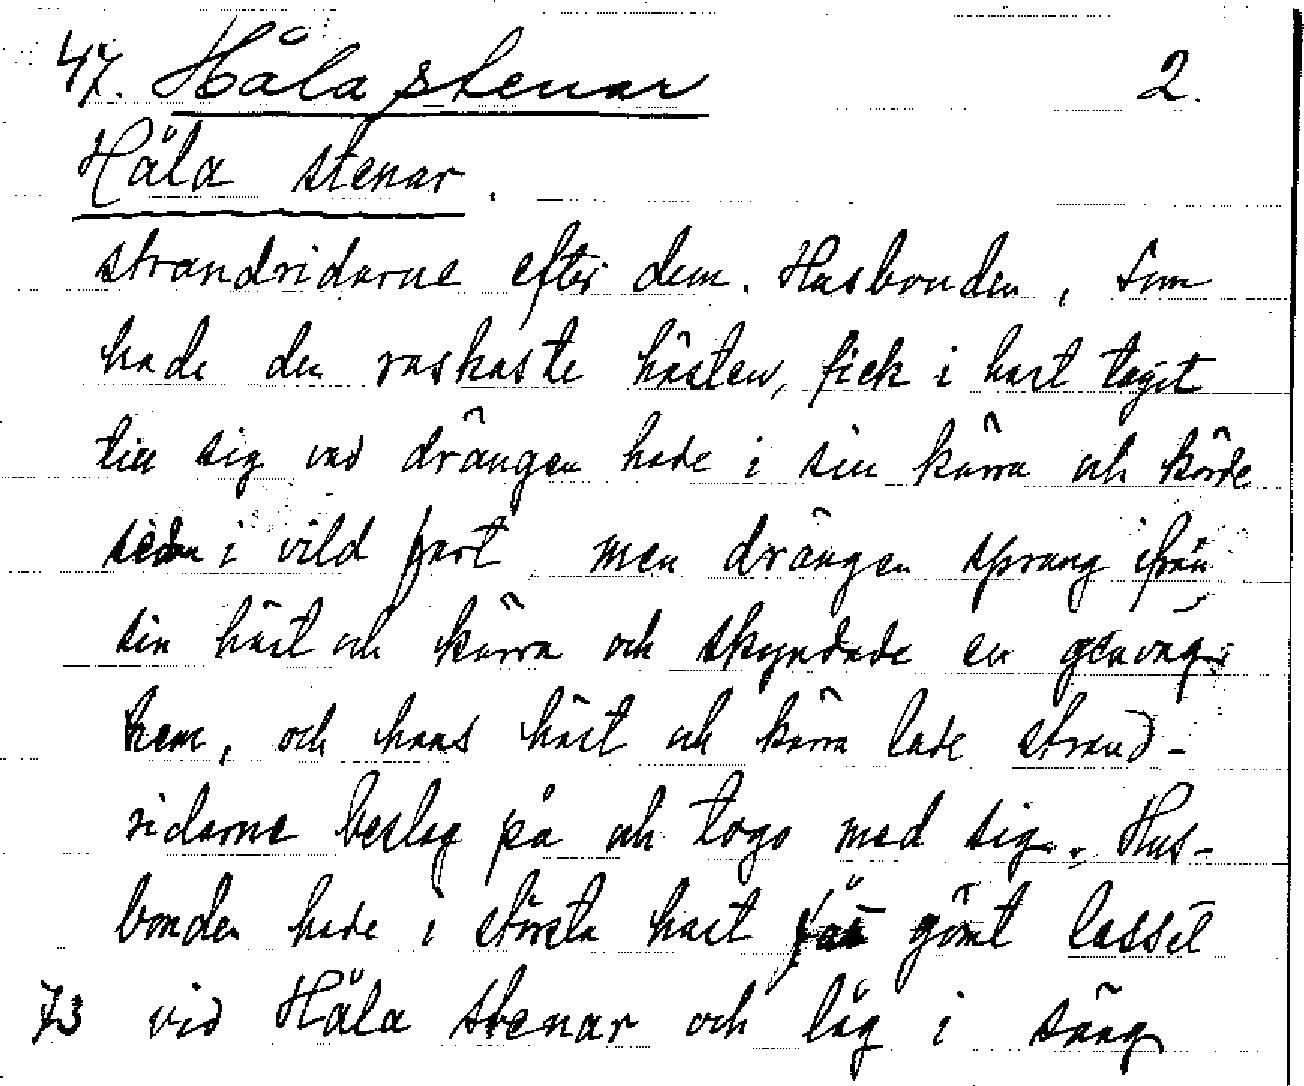 47. Håla stenar 2.
Håla stenar.
strandridarne efter dem. Husbonden, som
hade den raskaste hästen, fick i hast taget
till sig vad drängen hade i sin kärra och körde
sedan i vild fart men drängen sprang ifrån
sin häst och kärra och skyndade en genväg
hem, och hans häst och kärra lade strand-
ridarne beslag på och togo med sig. Hus-
bonden hade i största hast gömt lasset
73 vid Håla stenar och låg i säng